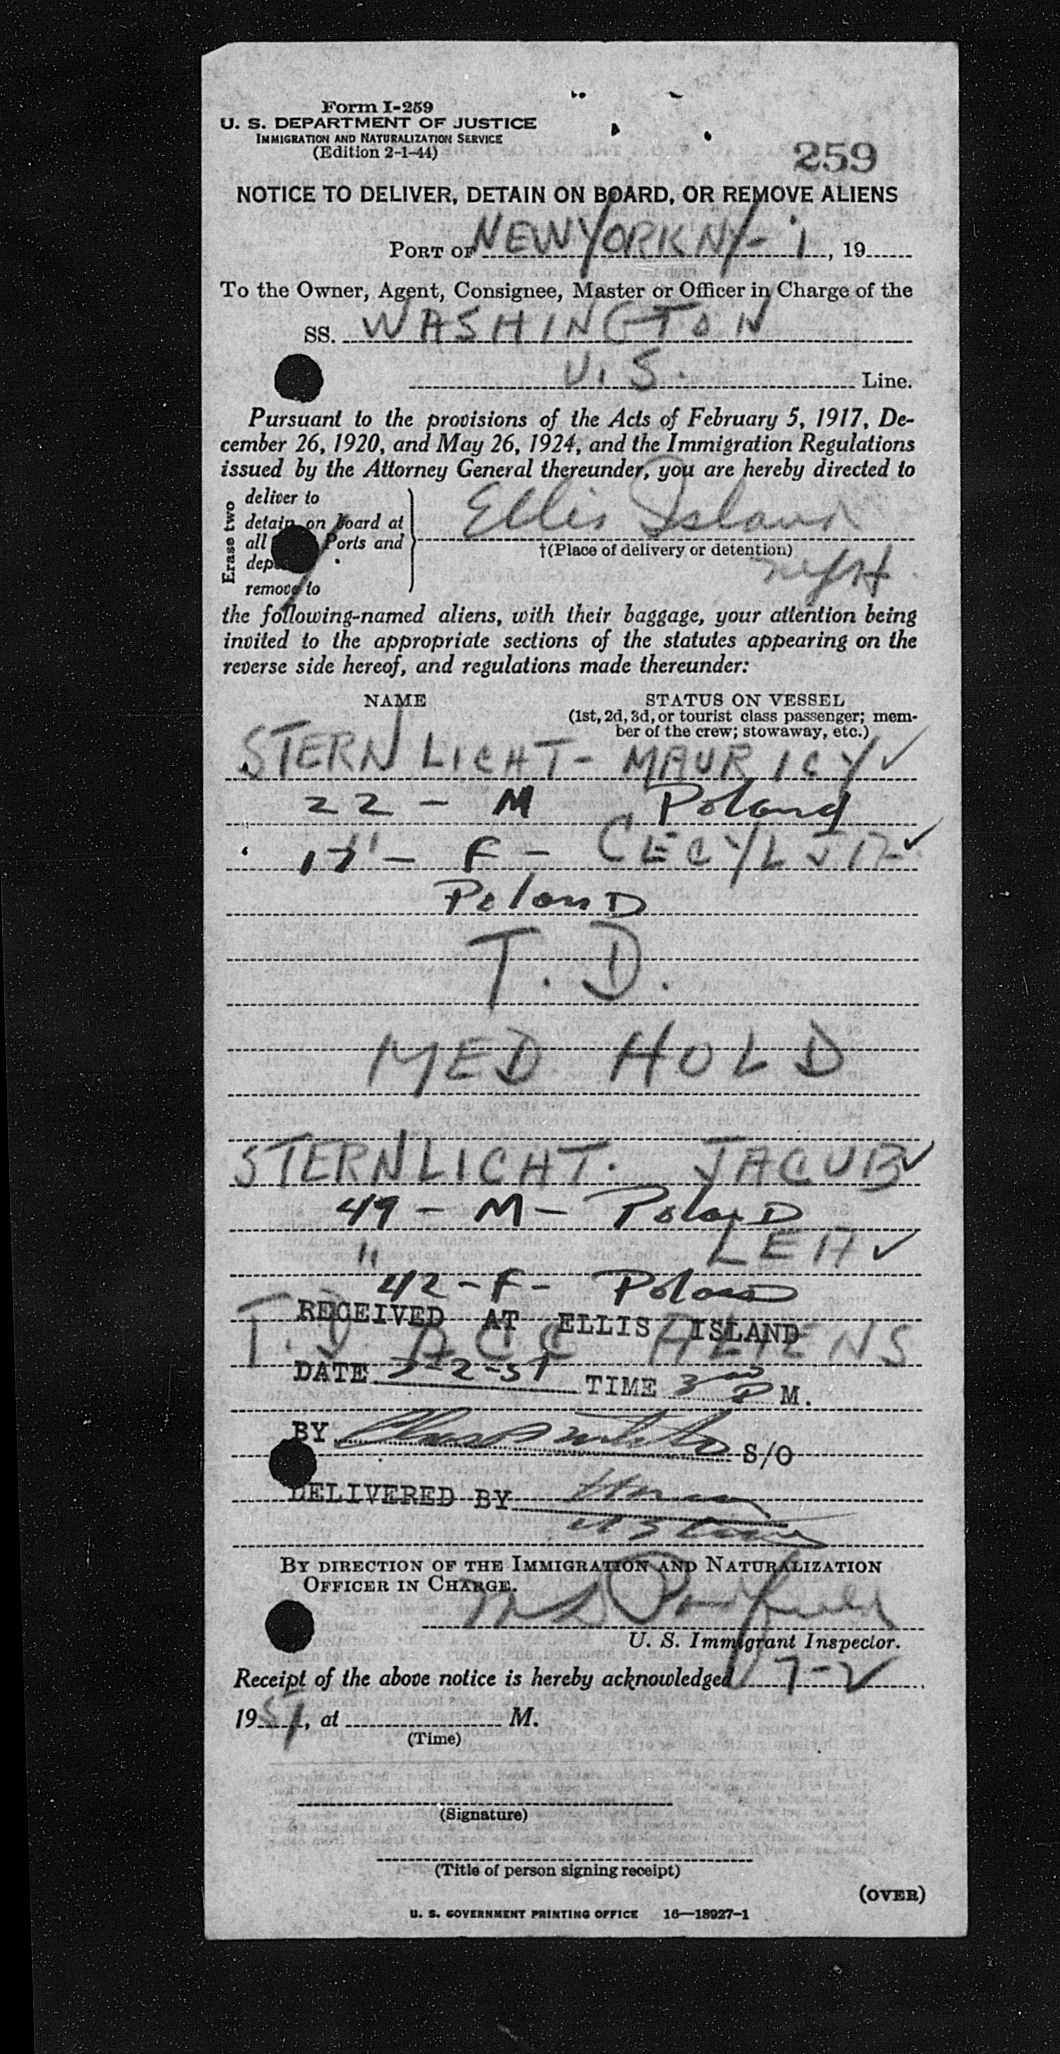 Form I-259
U. S. DEPARTMENT OF JUSTICE
IMMIGRATION AND NATURALIZATION SERVICE
(Edition 2-1-44)
259
NOTICE TO DELIVER, DETAIN ON BOARD, OR REMOVE ALIENS
PORT OF NEW YORK NY - 1, 19
To the Owner, Agent, Consignee, Master or Officer in Charge of the
SS. WASHINGTON
U. S. Line.
Pursuant to the provisions of the Acts of February 5, 1917, De-
cember 26, 1920, and May 26, 1924, and the Immigration Regulations
issued by the Attorney General thereunder, you are hereby directed to
Erase two
deliver to
detain on board at
all Ports and
remove to
Ellis Island
†(Place of delivery or detention)
the following-named aliens, with their baggage, your attention being
invited to the appropriate sections of the statutes appearing on the
reverse side hereof, and regulations made thereunder:
NAME STATUS ON VESSEL
(1st, 2d, 3d, or tourist class passenger; mem-
ber of the crew; stowaway, etc.)
STERNLICHT - MAURICY ✓
22 - M Poland
17 " - F - CECYLJA ✓
Poland
T. D.
MED HOLD
STERNLICHT. JACUB ✓
49 - M - Poland
" LEA ✓
42 - F - Poland
T. D. ACC ALIENS
RECEIVED AT ELLIS ISLAND
DATE 7-2-51 TIME 3 00 P M.
BY S/O
DELIVERED BY
BY DIRECTION OF THE IMMIGRATION AND NATURALIZATION
OFFICER IN CHARGE.
U. S. Immigrant Inspector.
Receipt of the above notice is hereby acknowledged 7-2
1951, at M.
(Time)
(Signature)
(Title of person signing receipt)
(OVER)
U. S. GOVERNMENT PRINTING OFFICE 16—18927-1